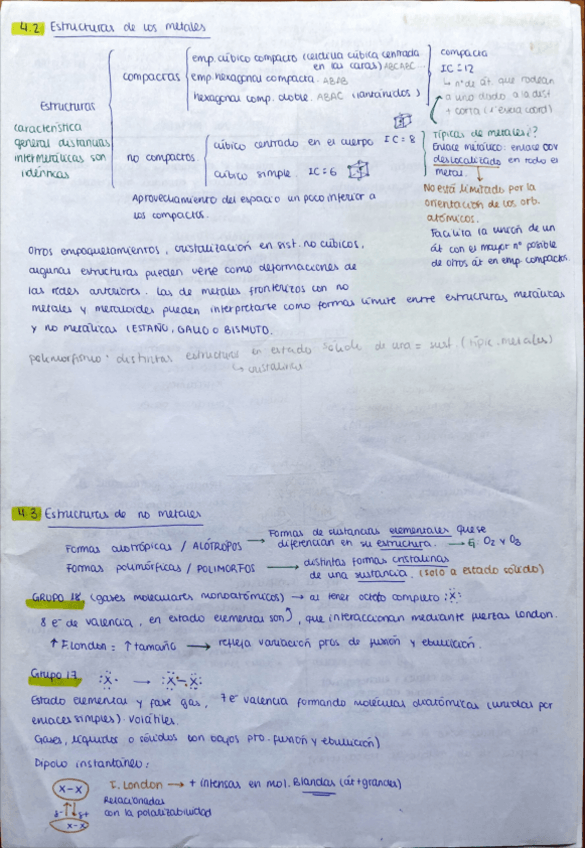 4.2 Estructuras de los metales
Estructuras
característica general distancias intermetálicas son idénticas
compactas
emp. cúbico compacto (celdilla cúbica centrada en las caras) ABCABC...
emp. hexagonal compacta. ABAB
hexagonal comp. doble. ABAC (lantánidos)
compacta
IC = 12
↳ nº de át. que rodean a uno dado a la dist + corta (1ª esfera coord)
no compactos
cúbico centrado en el cuerpo IC = 8
cúbico simple. IC = 6
Aprovechamiento del espacio un poco inferior a los compactos.
Típicas de metales ¿?
Enlace metálico: enlace cov deslocalizado en todo el metal.
No está limitado por la orientación de los orb. atómicos.
Facilita la unión de un át con el mayor nº posible de otros át en emp. compactos.
Otros empaquetamientos, cristalización en sist. no cúbicos,
algunas estructuras pueden verse como deformaciones de
las redes anteriores. Las de metales fronterizos con no
metales y metaloides pueden interpretarse como formas límite entre estructuras metálicas
y no metálicas (ESTAÑO, GALIO o BISMUTO).
polimorfismo: distintas estructuras en estado sólido de una = sust. (típic. metales)
↳ cristalina
4.3 Estructuras de no metales
Formas alotrópicas / ALÓTROPOS → Formas de sustancias elementales que se diferencian en su estructura. → Ej: O2 y O3
Formas polimórficas / POLIMORFOS → distintas formas cristalinas de una sustancia. (solo a estado sólido)
GRUPO 18 (gases moleculares monoatómicos) → al tener octeto completo :X:
8 e- de valencia, en estado elemental son, que interaccionan mediante fuerzas London.
↑ F. London = ↑ tamaño → refleja variación ptos de fusión y ebullición.
Grupo 17 :X· → :X-X:
Estado elemental y fase gas, 7e- valencia formando moléculas diatómicas (unidas por
enlaces simples). Volátiles.
Gases, líquidos o sólidos con bajos pto. fusión y ebullición)
Dipolo instantáneo:
X-X
δ- ↑↓ δ+
X-X
F. London → + intensas en mol. Blandas (át + grandes)
Relacionadas con la polarizabilidad